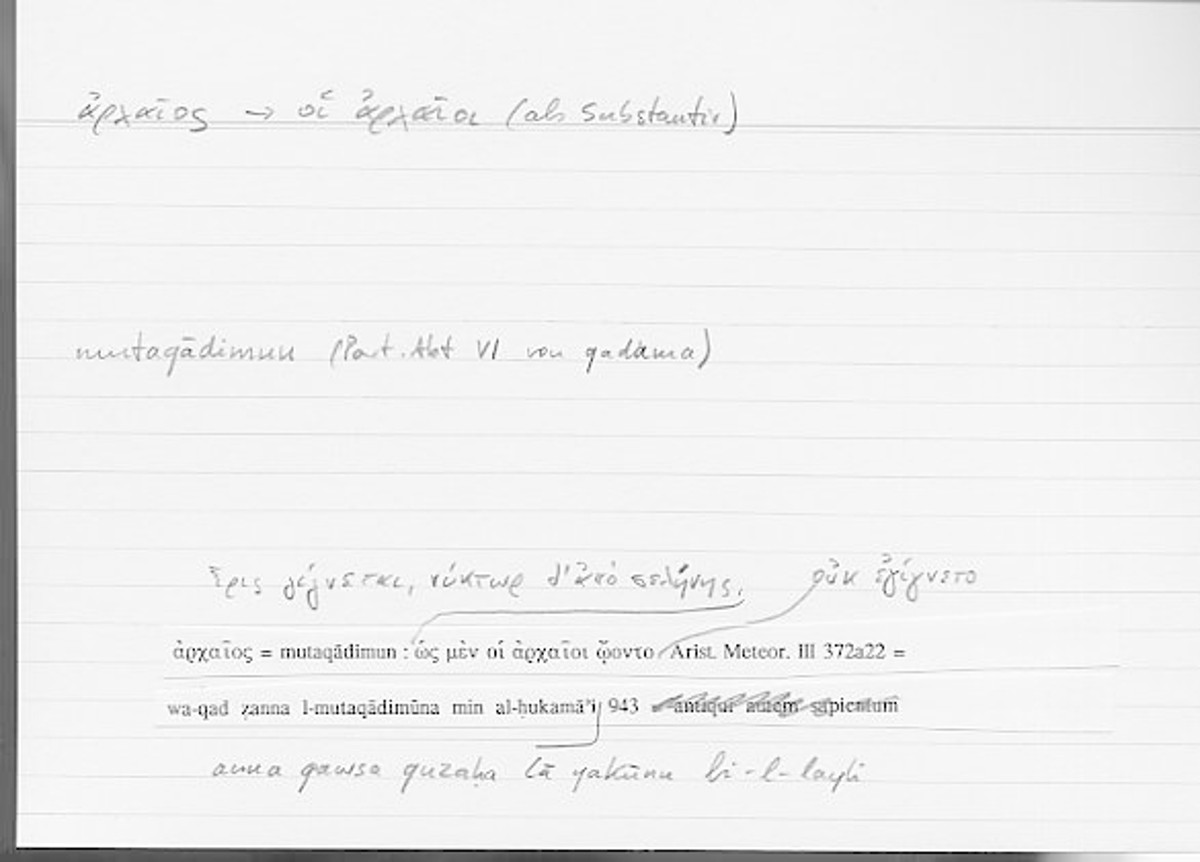 ἀρχαῖος → οἱ ἀρχαῖοι (als Substantiv)
mutaqādimun (Part. Akt VI von qadama)
ἶρις γίγνεται, νύκτωρ δ'ἀπὸ σελήνης, οὐκ ἐγίγνετο
ἀρχαῖος = mutaqādimun : ὡς μὲν οἱ ἀρχαῖοι ᾤοντο Arist. Meteor. III 372a22 =
wa-qad ẓanna l-mutaqādimūna min al-ḥukamāʾi 943 antiqui autem sapientum
anna qawsa quzaḥa lā yakūnu bi-l-layli